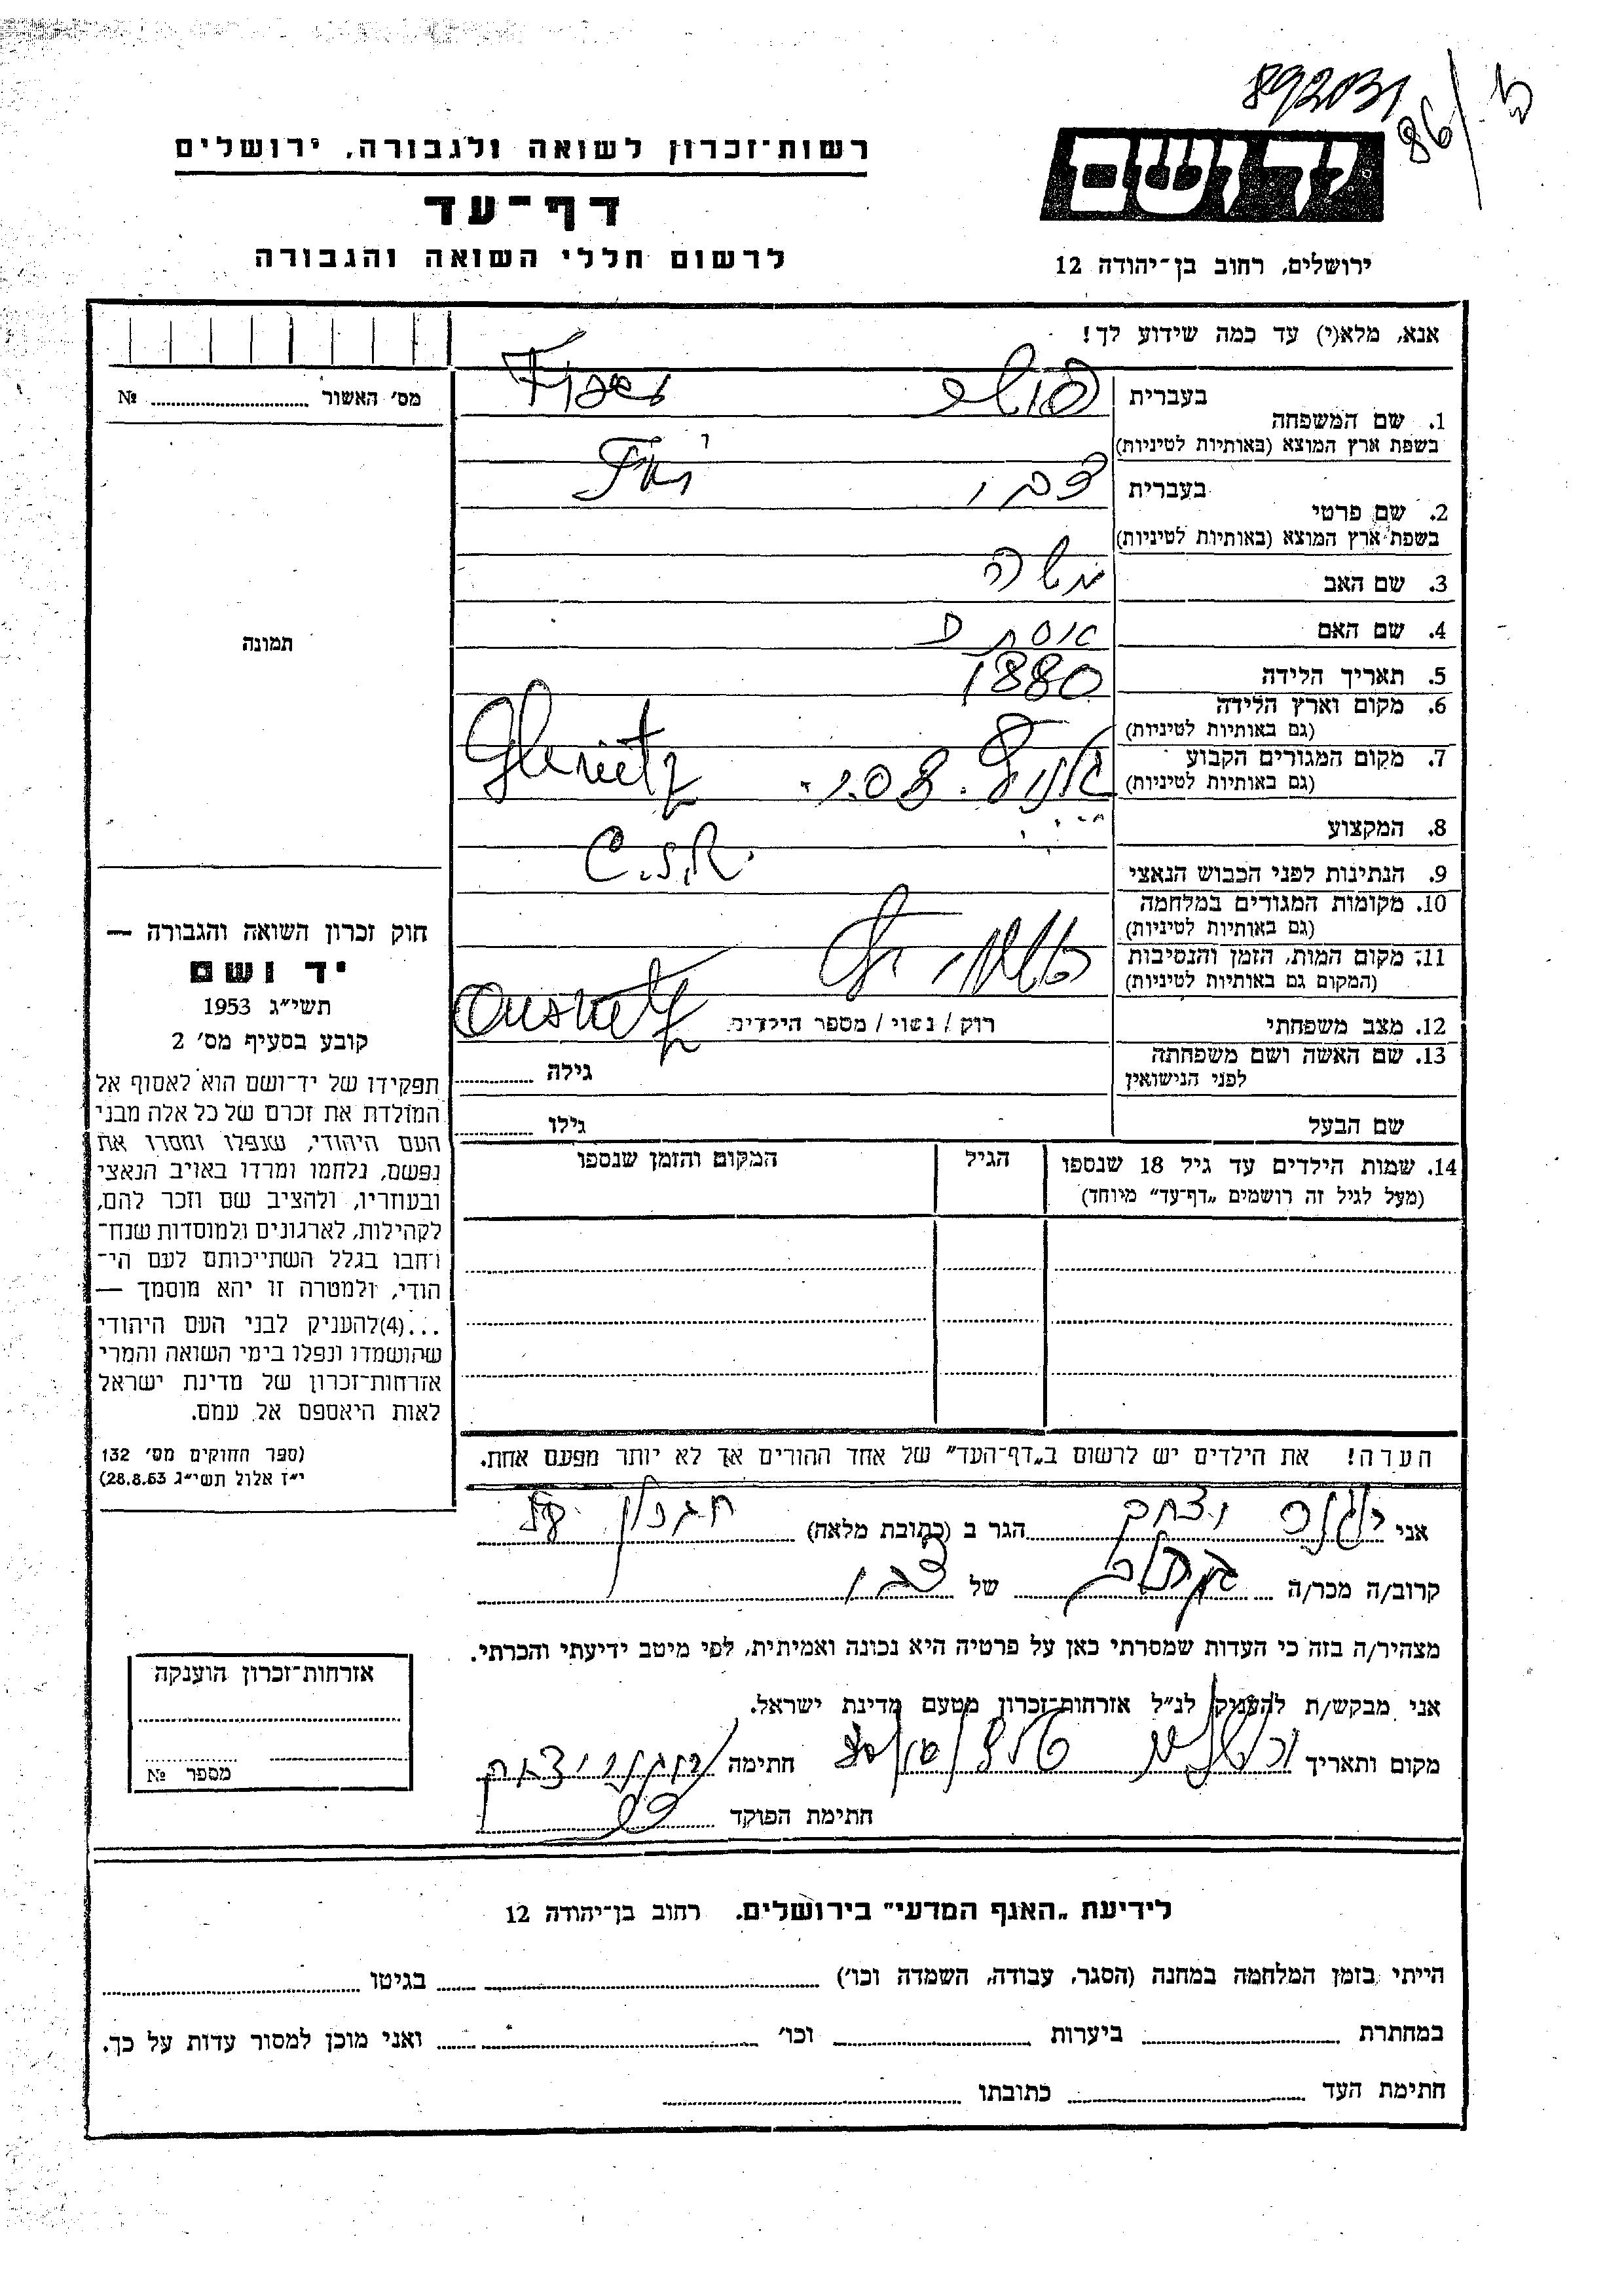 892031
86/
יד ושם
ירושלים, רחוב בן־יהודה 12
רשות־זכרון לשואה ולגבורה, ירושלים
דף־עד
לרשום חללי השואה והגבורה
אנא, מלא(י) עד כמה שידוע לך!
מס' האשור № 
תמונה
1. שם המשפחה בעברית
בשפת ארץ המוצא (באותיות לטיניות)
2. שם פרטי בעברית צבי
בשפת ארץ המוצא (באותיות לטיניות)
3. שם האב משה
4. שם האם אסתר
5. תאריך הלידה 1880
6. מקום וארץ הלידה
(גם באותיות לטיניות)
7. מקום המגורים הקבוע
(גם באותיות לטיניות)
8. המקצוע
9. הנתינות לפני הכבוש הנאצי C.S.R.
10. מקומות המגורים במלחמה
(גם באותיות לטיניות)
11. מקום המות, הזמן והנסיבות
(המקום גם באותיות לטיניות)
12. מצב משפחתי רוק / נשוי / מספר הילדים
13. שם האשה ושם משפחתה גילה
לפני הנישואין
שם הבעל גילו
14. שמות הילדים עד גיל 18 שנספו הגיל המקום והזמן שנספו
(מעל לגיל זה רושמים „דף־עד" מיוחד)
הערה! את הילדים יש לרשום ב„דף־העד" של אחד ההורים אך לא יותר מפעם אחת.
חוק זכרון השואה והגבורה —
יד ושם
תשי"ג 1953
קובע בסעיף מס' 2
תפקידו של יד־ושם הוא לאסוף אל
המולדת את זכרם של כל אלה מבני
העם היהודי, שנפלו ומסרו את
נפשם, נלחמו ומרדו באויב הנאצי
ובעוזריו, ולהציב שם וזכר להם,
לקהילות, לארגונים ולמוסדות שנח־
רבו בגלל השתייכותם לעם הי־
הודי, ולמטרה זו יהא מוסמך —
...(4) להעניק לבני העם היהודי
שהושמדו ונפלו בימי השואה והמרי
אזרחות־זכרון של מדינת ישראל
לאות היאספם אל עמם.
(ספר החוקים מס' 132
י"ז אלול תשי"ג 28.8.53)
אני יצחק הגר ב (כתובת מלאה)
קרוב/ה מכר/ה של צבי
מצהיר/ה בזה כי העדות שמסרתי כאן על פרטיה היא נכונה ואמיתית, לפי מיטב ידיעתי והכרתי.
אני מבקש/ת להעניק לנ"ל אזרחות־זכרון מטעם מדינת ישראל.
מקום ותאריך חתימה
חתימת הפוקד
אזרחות־זכרון הוענקה
מספר №
לידיעת „האגף המדעי" בירושלים. רחוב בן־יהודה 12
הייתי בזמן המלחמה במחנה (הסגר, עבודה, השמדה וכו') בגיטו
במחתרת ביערות וכו' ואני מוכן למסור עדות על כך.
חתימת העד כתובתו